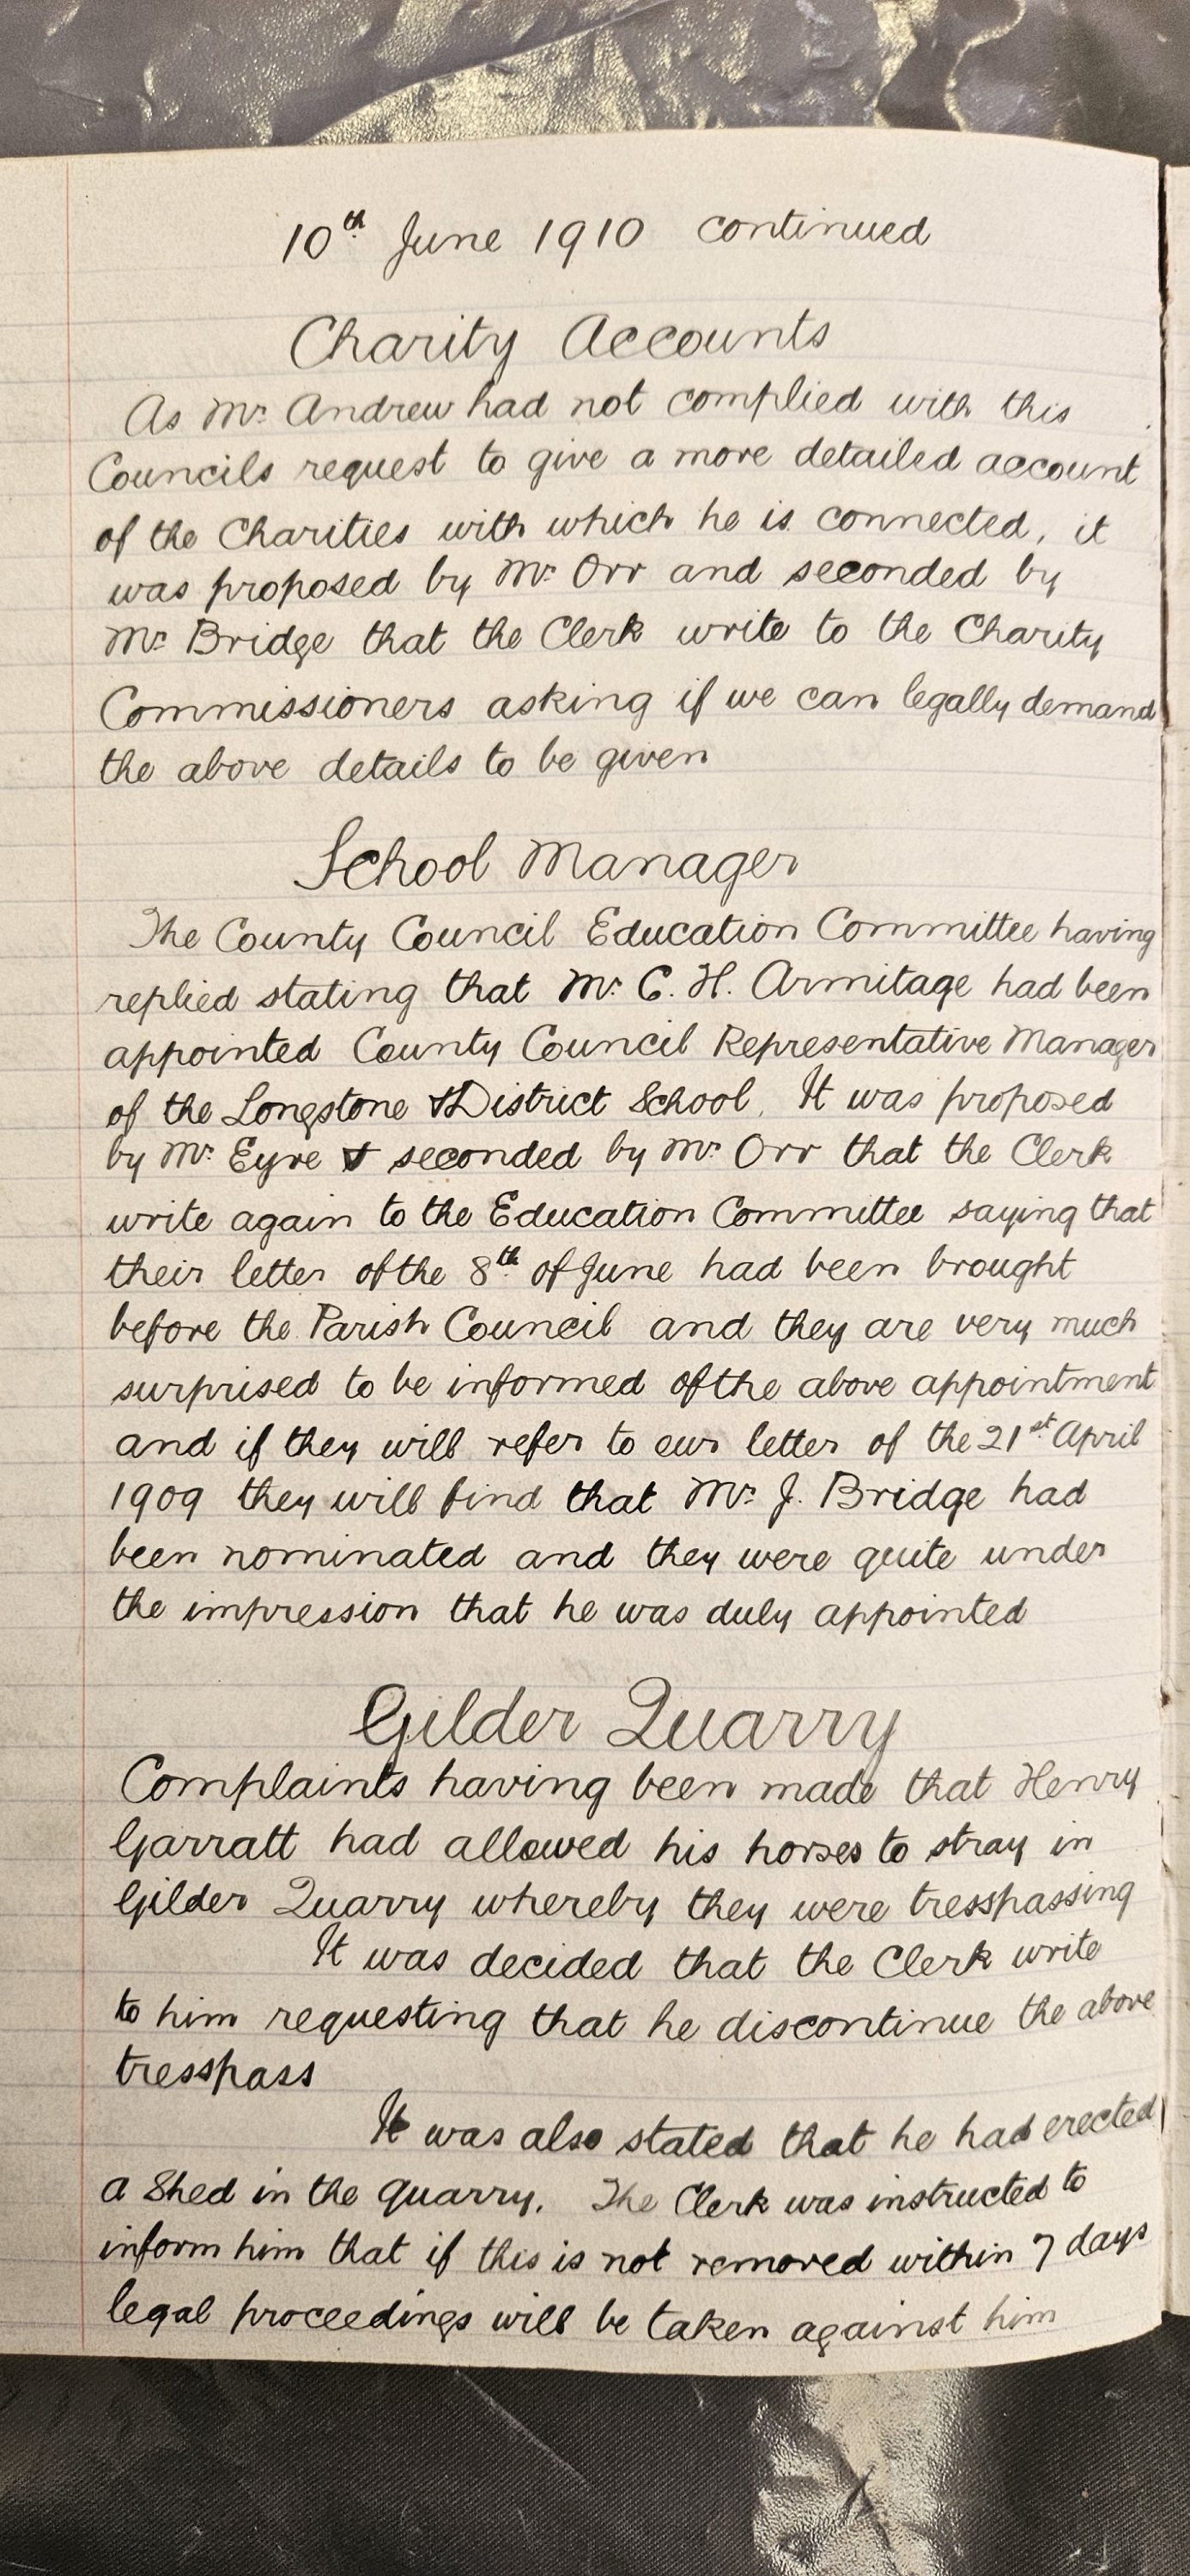 10th June 1910 continued
Charity Accounts
As Mr Andrew had not complied with this
Councils request to give a more detailed account
of the Charities with which he is connected, it
was proposed by Mr Orr and seconded by
Mr Bridge that the Clerk write to the Charity
Commissioners asking if we can legally demand
the above details to be given
School Manager
The County Council Education Committee having
replied stating that Mr C. H. Armitage had been
appointed County Council Representative Manager
of the Longstone & District School. It was proposed
by Mr Eyre & seconded by Mr Orr that the Clerk
write again to the Education Committee saying that
their letter of the 8th of June had been brought
before the Parish Council and they are very much
surprised to be informed of the above appointment
and if they will refer to our letter of the 21st April
1909 they will find that Mr J. Bridge had
been nominated and they were quite under
the impression that he was duly appointed
Gilder Quarry
Complaints having been made that Henry
Garratt had allowed his horses to stray in
Gilder Quarry whereby they were tresspassing
It was decided that the Clerk write
to him requesting that he discontinue the above
tresspass
It was also stated that he had erected
a Shed in the quarry. The Clerk was instructed to
inform him that if this is not removed within 7 days
legal proceedings will be taken against him